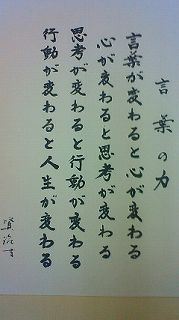 言葉の力
言葉が変わると心が変わる
心が変わると思考が変わる
思考が変わると行動が変わる
行動が変わると人生が変わる